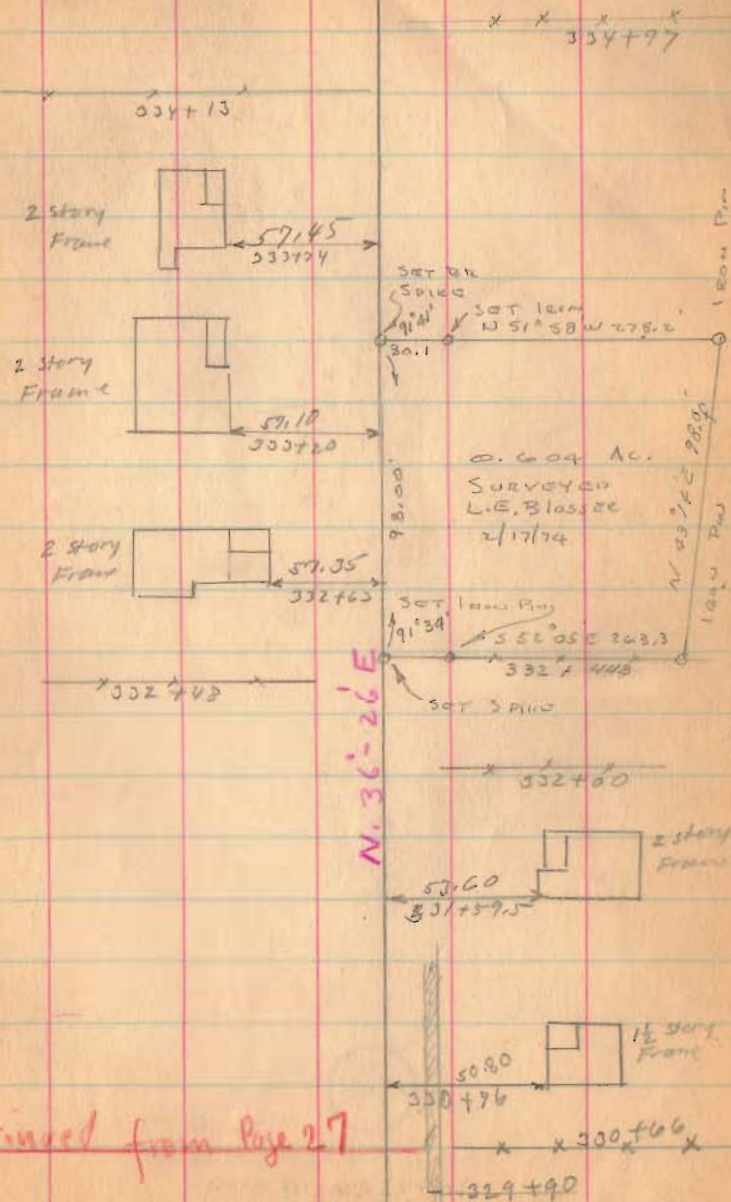 334+97
334+13
2 story
Frame
57.45
333+74
SET RR
SPIKE
91°41'
30.1
SET IRON
N 51°58 W 275.2'
IRON PIN
2 story
Frame
57.10
333+20
98.00'
0.604 AC.
SURVEYED
L.E. BLOSSER
2/17/74
IRON PIN
2 story
Frame
57.35
332+63
SET IRON PIN
91°39'
S 52°05 E 263.3
332+48
SET SPIKE
N. 36°-26' E
332+00
2 story
Frame
53.60
331+59.5
1½ Story
Frame
50.80
330+96
from Page 27
330+66
329+90